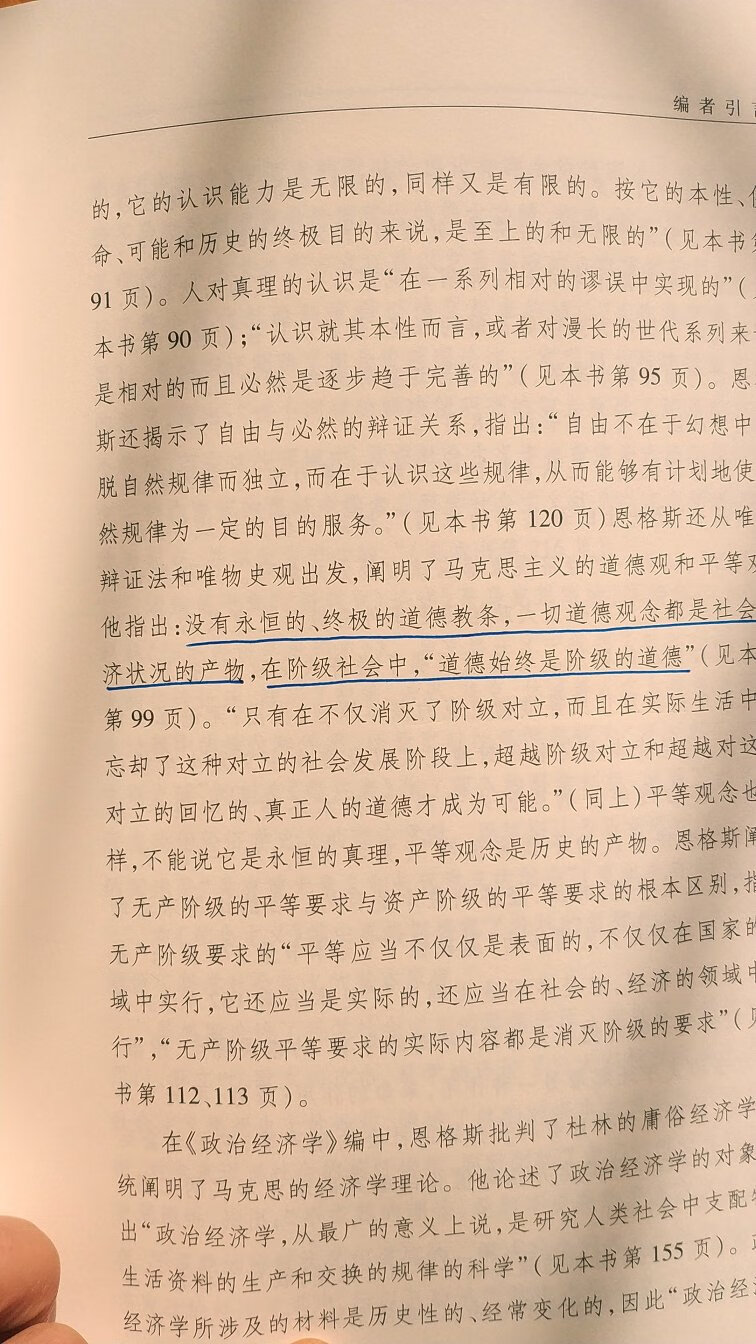 编者引
的,它的认识能力是无限的,同样又是有限的。按它的本性、
命、可能和历史的终极目的来说,是至上的和无限的”(见本书
91 页)。人对真理的认识是“在一系列相对的谬误中实现的”(
本书第 90 页);“认识就其本性而言,或者对漫长的世代系列来
是相对的而且必然是逐步趋于完善的”(见本书第 95 页)。恩
斯还揭示了自由与必然的辩证关系,指出:“自由不在于幻想中
脱自然规律而独立,而在于认识这些规律,从而能够有计划地使
然规律为一定的目的服务。”(见本书第 120 页)恩格斯还从唯
辩证法和唯物史观出发,阐明了马克思主义的道德观和平等
他指出:没有永恒的、终极的道德教条,一切道德观念都是社会
济状况的产物,在阶级社会中,“道德始终是阶级的道德”(见本
第 99 页)。“只有在不仅消灭了阶级对立,而且在实际生活中
忘却了这种对立的社会发展阶段上,超越阶级对立和超越对这
对立的回忆的、真正人的道德才成为可能。”(同上)平等观念也
样,不能说它是永恒的真理,平等观念是历史的产物。恩格斯
了无产阶级的平等要求与资产阶级的平等要求的根本区别,
无产阶级要求的“平等应当不仅仅是表面的,不仅仅在国家的
域中实行,它还应当是实际的,还应当在社会的、经济的领域中
行”,“无产阶级平等要求的实际内容都是消灭阶级的要求”(
书第 112、113 页)。
在《政治经济学》编中,恩格斯批判了杜林的庸俗经济学
统阐明了马克思的经济学理论。他论述了政治经济学的对象
出“政治经济学,从最广的意义上说,是研究人类社会中支配
生活资料的生产和交换的规律的科学”(见本书第 155 页)。
经济学所涉及的材料是历史性的、经常变化的,因此“政治经